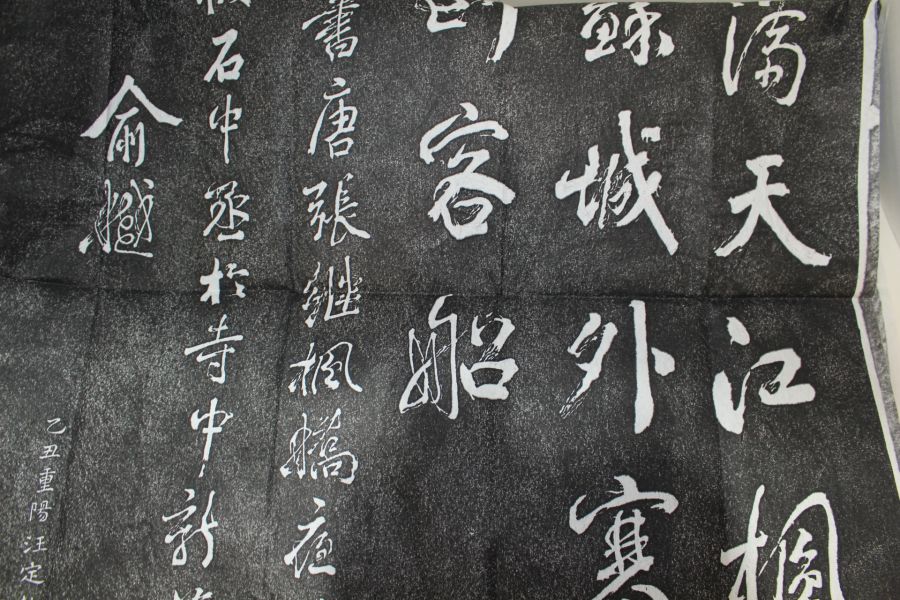 滿天江楓
蘇城外寒
客船
書唐張繼楓橋夜
石中丞於寺中新
俞樾
乙丑重陽汪定